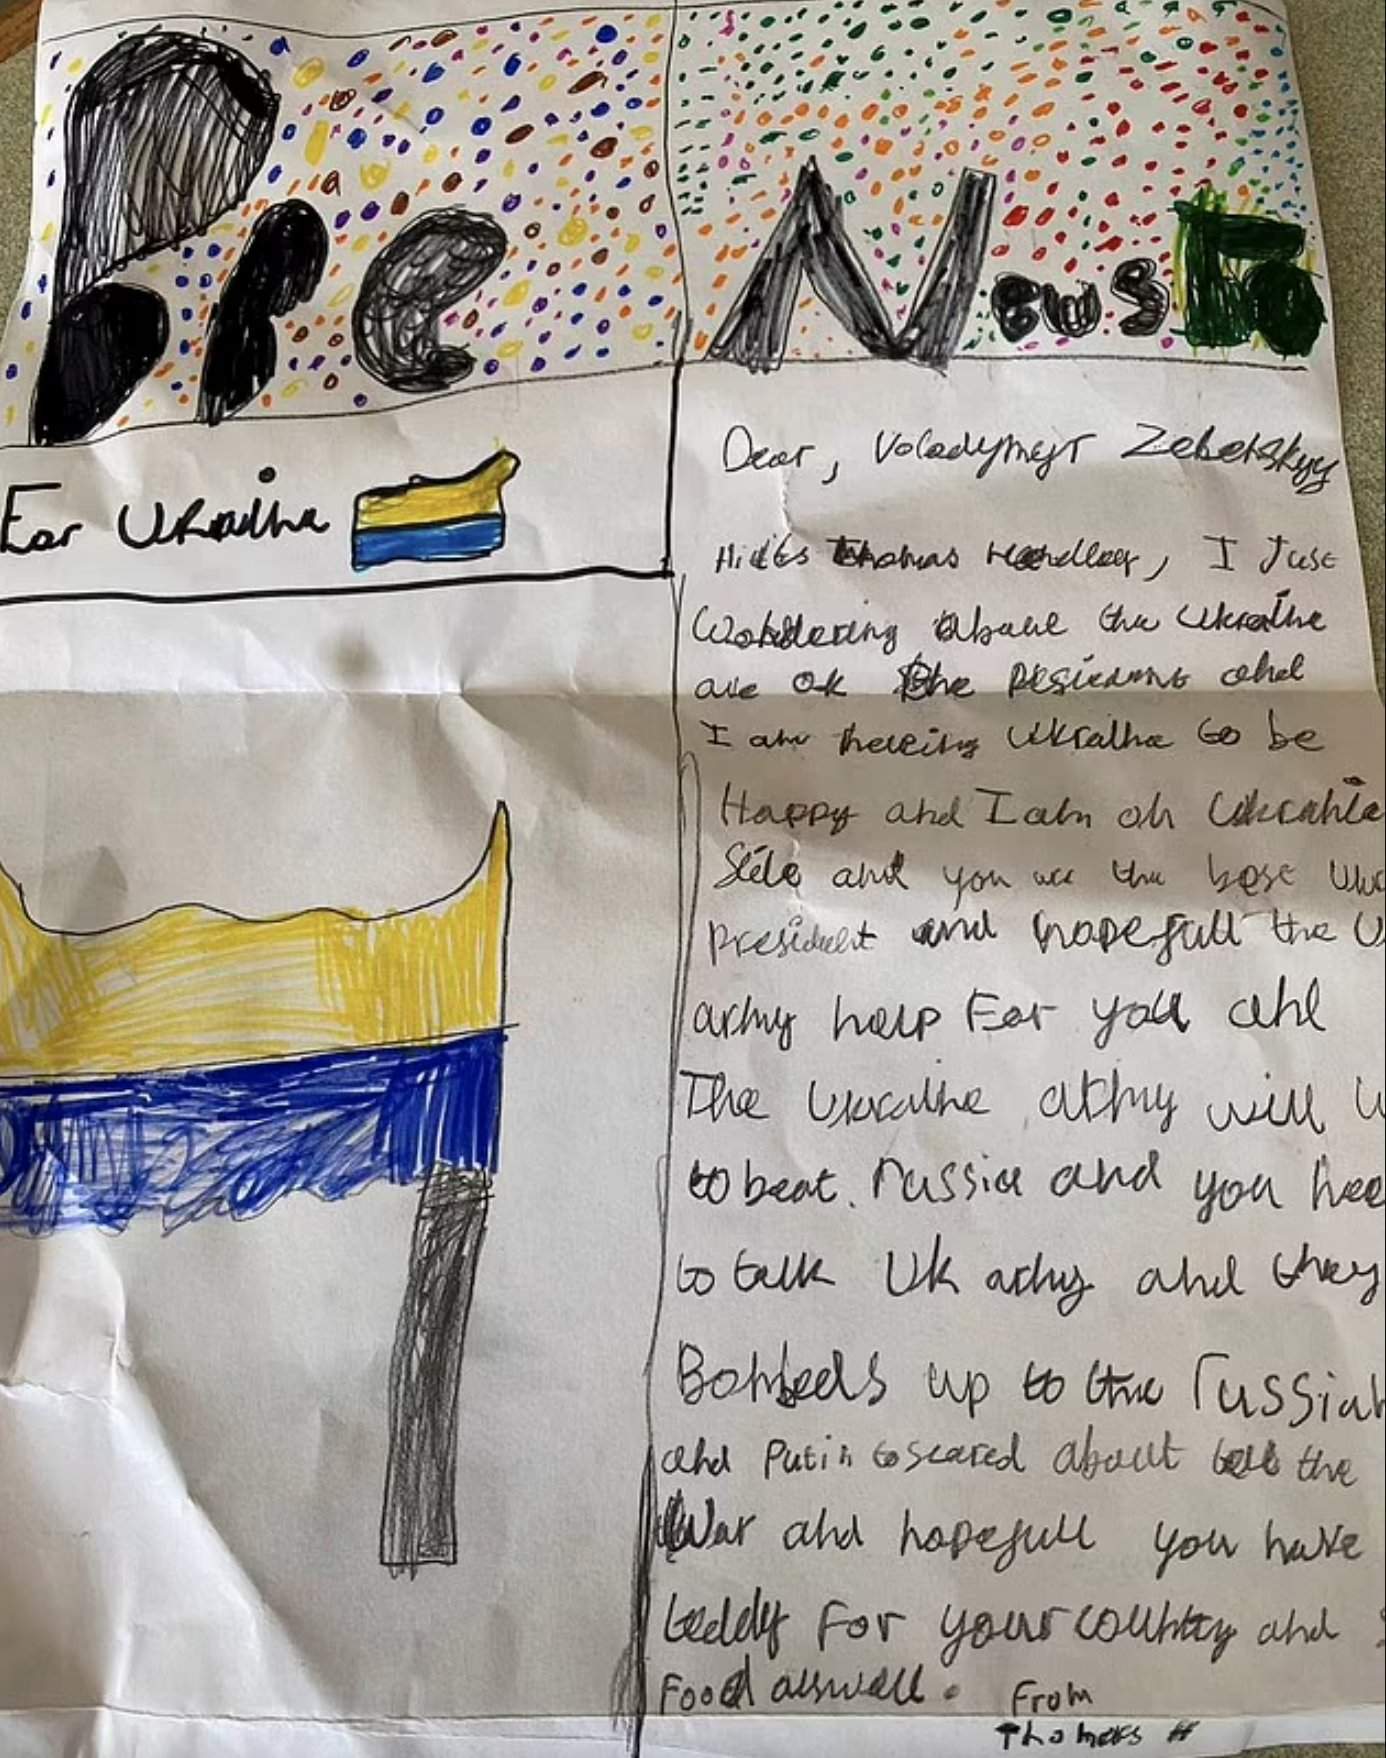 News
For Ukraine
Dear, Voladymyr Zelenskyy
Hi its Thomas, I Just
Wondering about the Ukraine
are ok the and
I am Ukraine to be
Happy and I am on Ukraine
Side and you are the best
president and hopefull the
army help For you and
The Ukraine army will
to beat. russia and you
to talk Uk army and they
up to the russian
and Putin to scared about the
War and hopefull you have
teddy For your country and
Food aswell. From
Thomas H